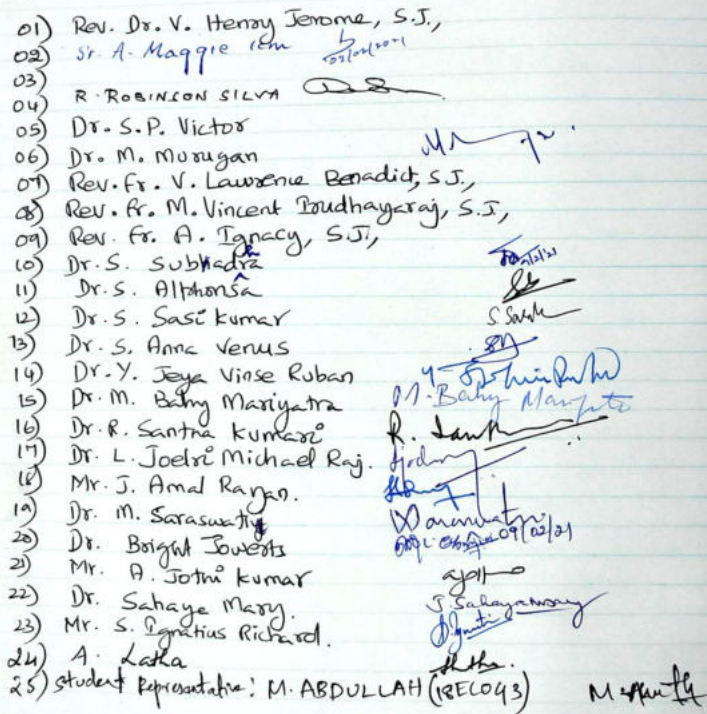 01) Rev. Dr. V. Henry Jerome, S.J.,
02) Sr. A. Maggie icm 02/02/2021
03)
04) R. ROBINSON SILVA
05) Dr. S.P. Victor
06) Dr. M. Murugan
07) Rev. Fr. V. Lawrence Benadict, S.J.,
08) Rev. Fr. M. Vincent Brudhayaraj, S.J,
09) Rev. Fr. A. Ignacy, S.J.,
10) Dr. S. Subhadra
11) Dr. S. Alphonsa
12) Dr. S. Sasi Kumar
13) Dr. S. Anna Venus
14) Dr. Y. Jeya Vinse Ruban
15) Dr. M. Baby Mariyatra M. Baby
16) Dr. R. Santha Kumari R.
17) Dr. L. Joelri Michael Raj.
18) Mr. J. Amal Rayan.
19) Dr. M. Saraswathy
20) Dr. Bright Jowerts 09/02/21
21) Mr. A. Jothi Kumar
22) Dr. Sahaya Mary. J. Sahayamary
23) Mr. S. Ignatius Richard.
24) A. Latha
25) Student Representative: M. ABDULLAH (18ECO43)